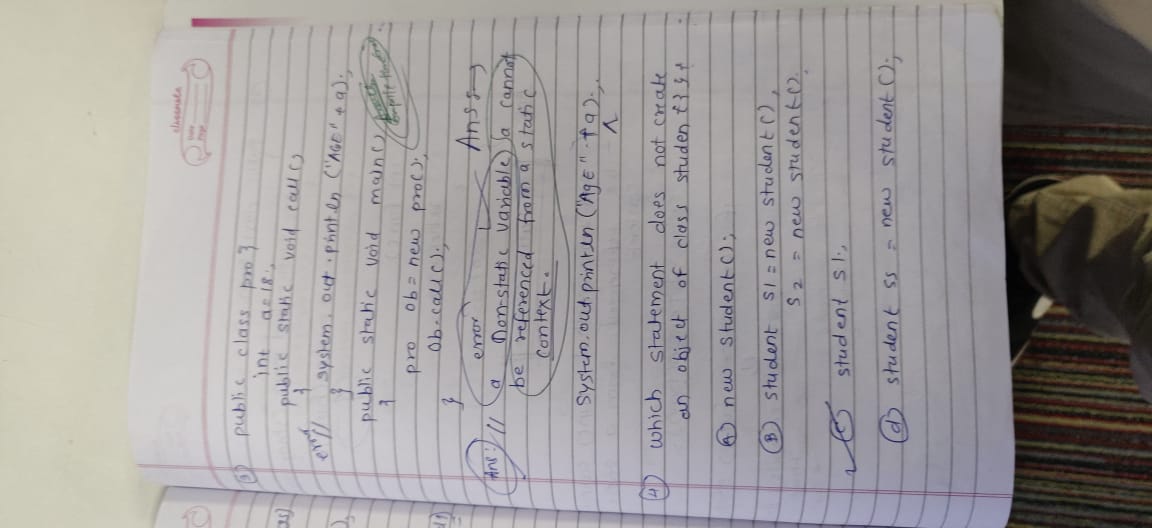 classmate
Date
Page
③ public class pro {
int a=18;
public static void call()
{
error// system.out.println ("AGE" + a);
}
public static void main()
{
pro ob = new pro();
Ob.call();
}
error Ans
Ans:// a non-static variable a cannot
be referenced from a static
context.
System.out.println ("AgE" + a);
^
④ which statement does not create
an object of class student {} ?
Ⓐ new student();
Ⓑ student s1 = new student(),
s2 = new student().
Ⓒ student s1;
ⓓ student ss = new student();